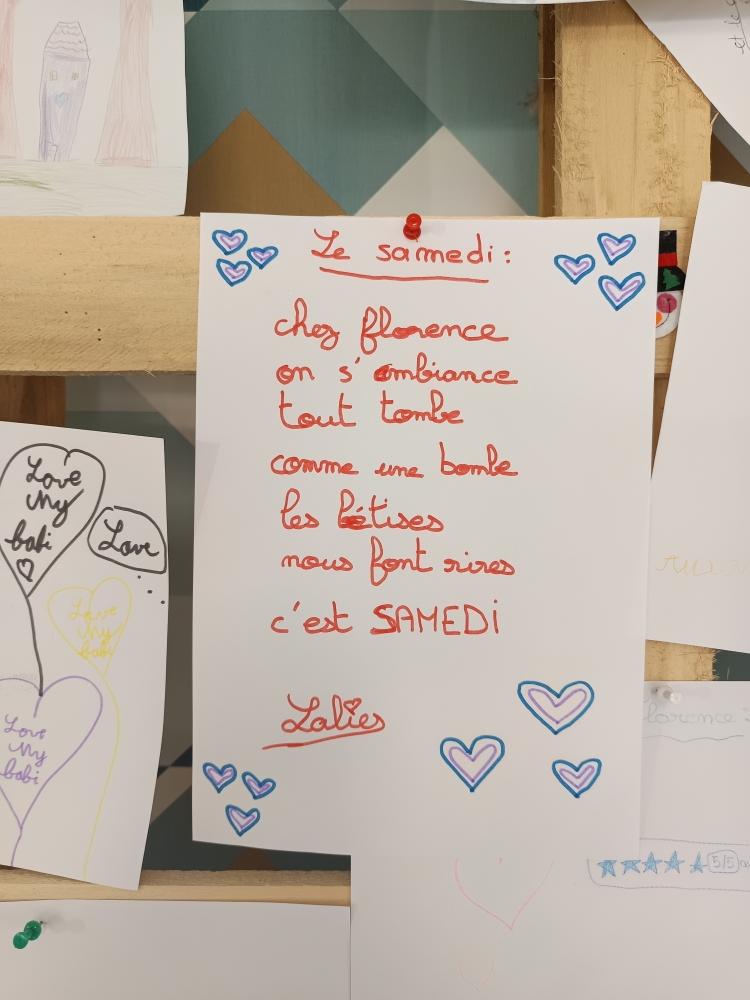 Le samedi :
chez florence
on s'ambiance
tout tombe
comme une bombe
les bétises
nous font rires
c'est SAMEDI
Lalies
Love
My
babi
Love
Love
My
babi
Love
My
babi
florence :
5/5